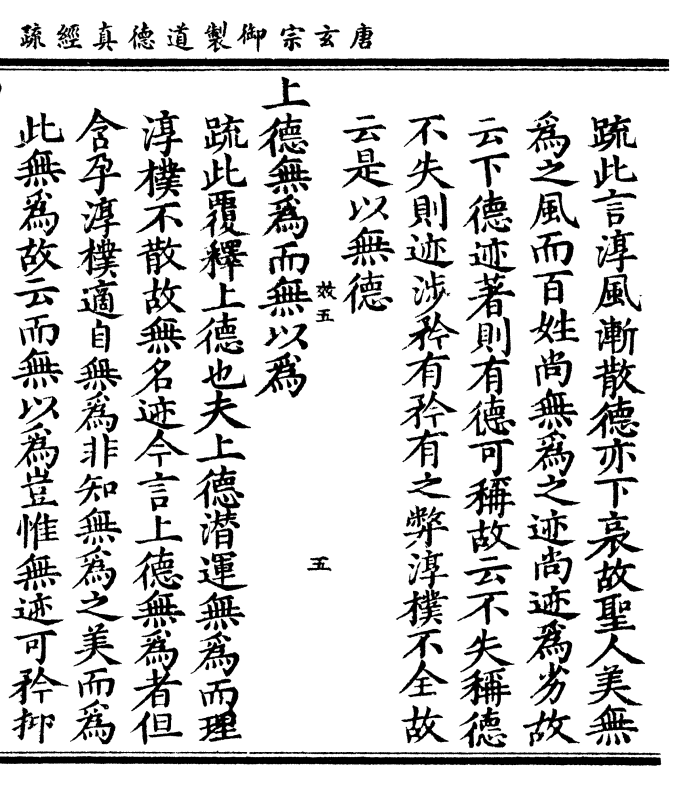 唐玄宗御製道德真經疏
疏此言淳風漸散德亦下衰故聖人美無
爲之風而百姓尚無爲之迹尚迹爲劣故
云下德迹著則有德可稱故云不失稱德
不失則迹涉矜有矜有之弊淳樸不全故
云是以無德
效五
五
上德無爲而無以爲
疏此覆釋上德也夫上德潜運無爲而理
淳樸不散故無名迹今言上德無爲者但
含孕淳樸適自無爲非知無爲之美而爲
此無爲故云而無以爲豈惟無迹可矜抑